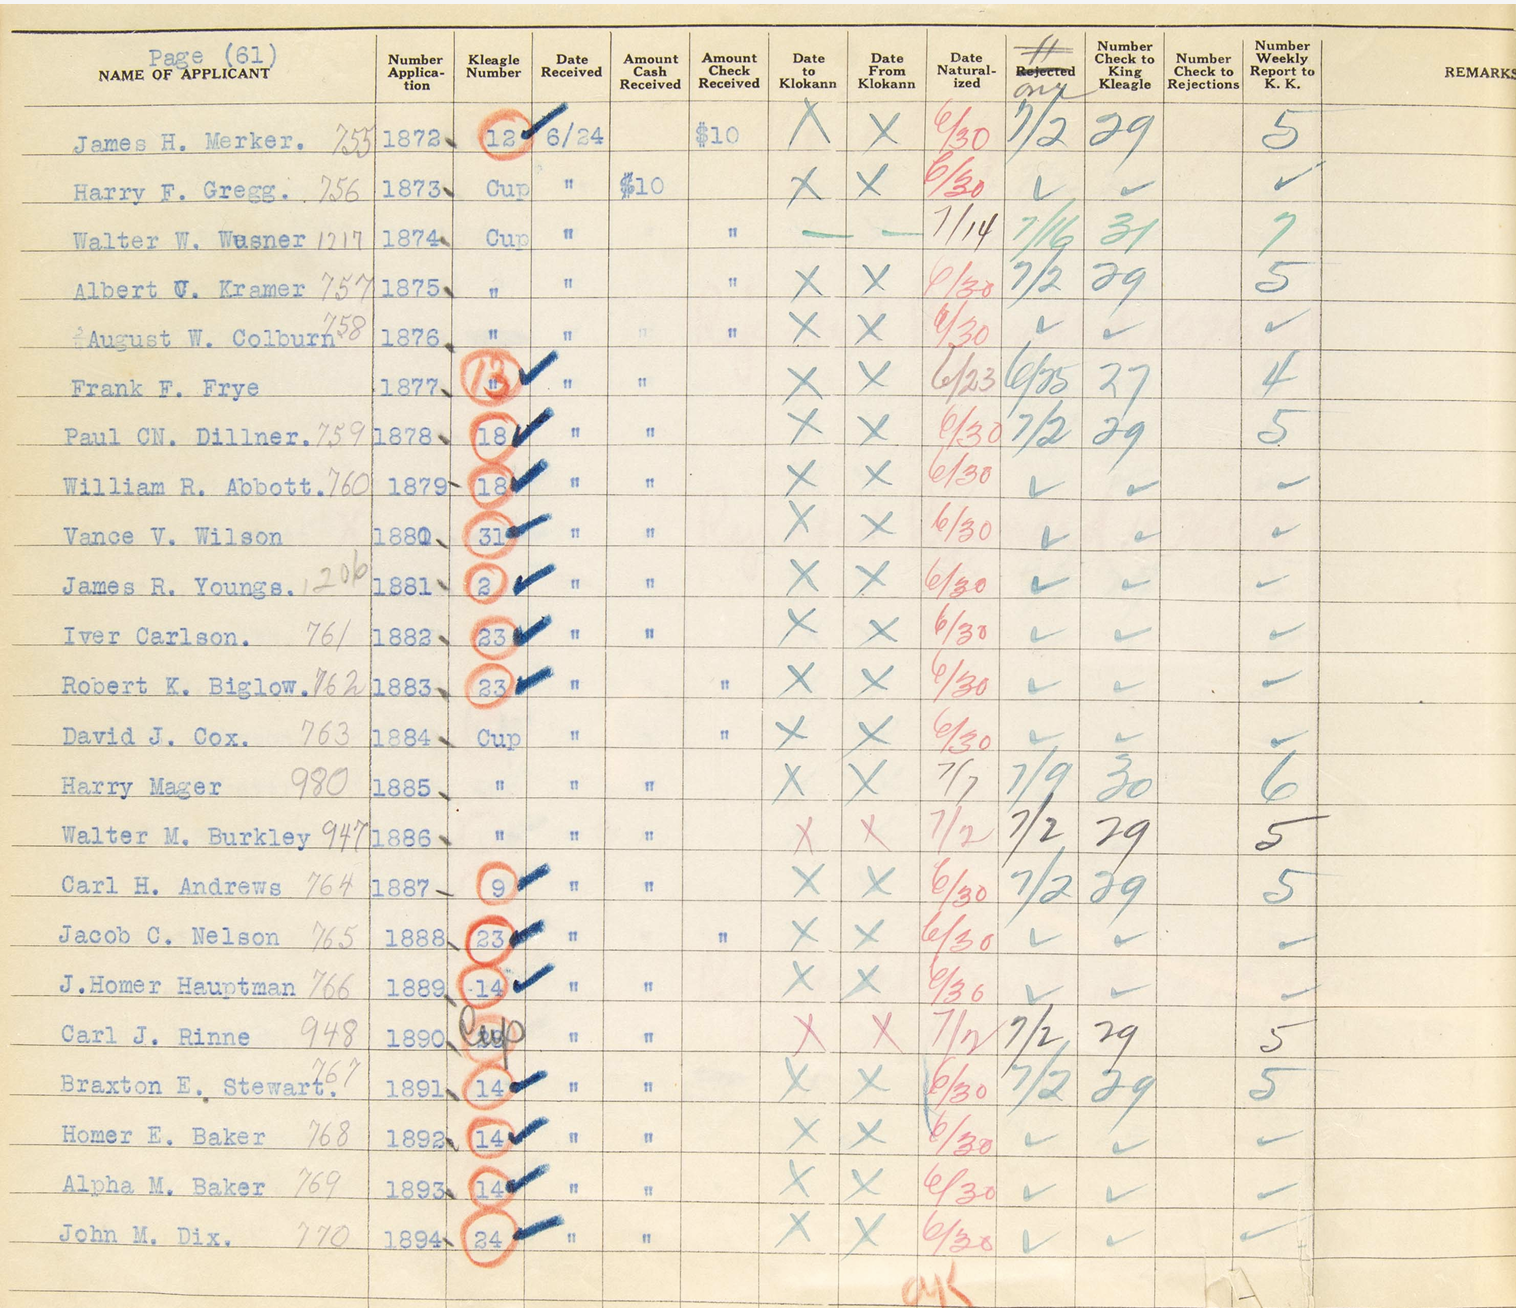 Page (61)
NAME OF APPLICANT Number Applica- tion Kleagle Number Date Received Amount Cash Received Amount Check Received Date to Klokann Date From Klokann Date Natural- ized # Rejected Number Check to King Kleagle Number Check to Rejections Number Weekly Report to K. K. REMARKS
James H. Merker. 755 1872 12 ✓ 6/24 $10 X X 6/30 7/2 29 5
Harry F. Gregg. 756 1873 Cup " $10 X X 6/30 ✓ ✓ ✓
Walter W. Wasner 1217 1874 Cup " " — — 7/14 7/16 31 7
Albert U. Kramer 757 1875 " " " X X 6/30 7/2 29 5
August W. Colburn 758 1876 " " " X X 6/30 ✓ ✓ ✓
Frank F. Frye 1877 13 " ✓ " " X X 6/23 6/25 27 4
Paul CN. Dillner. 759 1878 18 ✓ " " X X 6/30 7/2 29 5
William R. Abbott. 760 1879 18 ✓ " " X X 6/30 ✓ ✓ ✓
Vance V. Wilson 1880 31 ✓ " " X X 6/30 ✓ ✓ ✓
James R. Youngs. 1206 1881 2 ✓ " " X X 6/30 ✓ ✓ ✓
Iver Carlson. 761 1882 23 ✓ " " X X 6/30 ✓ ✓ ✓
Robert K. Biglow. 762 1883 23 ✓ " " X X 6/30 ✓ ✓ ✓
David J. Cox. 763 1884 Cup " " X X 6/30 ✓ ✓ ✓
Harry Mager 980 1885 " " " X X 7/7 7/9 30 6
Walter M. Burkley 947 1886 " " " X X 7/2 7/2 29 5
Carl H. Andrews 764 1887 9 ✓ " " X X 6/30 7/2 29 5
Jacob C. Nelson 765 1888 23 ✓ " " X X 6/30 ✓ ✓ ✓
J.Homer Hauptman 766 1889 14 ✓ " " X X 6/30 ✓ ✓ ✓
Carl J. Rinne 948 1890 Cup " " X X 7/2 7/2 29 5
Braxton E. Stewart. 767 1891 14 ✓ " " X X 6/30 7/2 29 5
Homer E. Baker 768 1892 14 ✓ " " X X 6/30 ✓ ✓ ✓
Alpha M. Baker 769 1893 14 ✓ " " X X 6/30 ✓ ✓ ✓
John M. Dix. 770 1894 24 ✓ " " X X 6/30 ✓ ✓ ✓